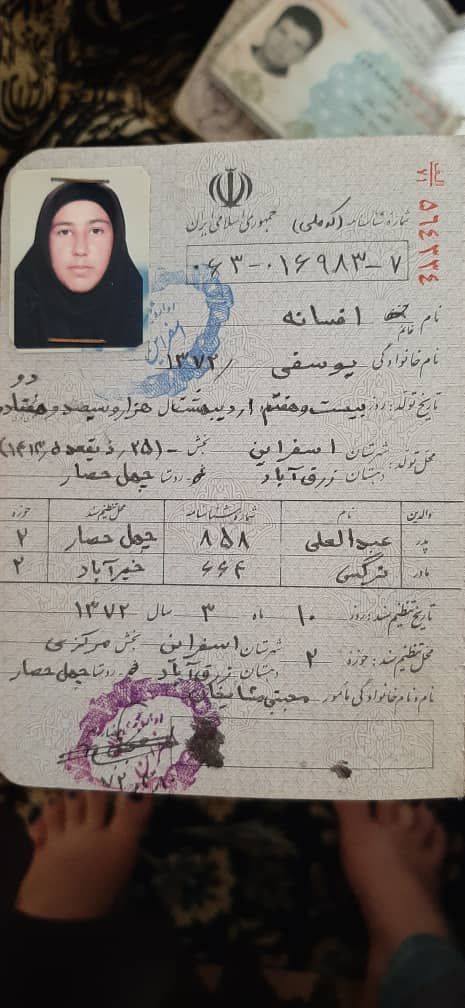 شماره شناسنامه (کد ملی) جمهوری اسلامی ایران
۰۶۳-۰۱۶۹۸۳-۷
۵۶۴۲۲۴
نام خانم افسانه
نام خانوادگی یوسفی /۱۳۷۲
دو
تاریخ تولد: روز بیست و هفتم اردیبهشت سال هزار و سیصد و هفتاد
محل تولد: شهرستان اسفراین بخش - (۲۵ ذیقعده ۱۴۱۳)
دهستان زرق آباد روستا چهل حصار
والدین نام شماره شناسنامه محل تنظیم سند حوزه
پدر عبدالعلی ۸۵۸ چهل حصار ۲
مادر نرگس ۶۶۴ خیرآباد ۲
تاریخ تنظیم سند: روز ۱۰ ماه ۳ سال ۱۳۷۲
محل تنظیم سند: حوزه ۲ شهرستان اسفراین بخش مرکزی
دهستان زرق آباد روستا چهل حصار
نام و نام خانوادگی مأمور مجتبی